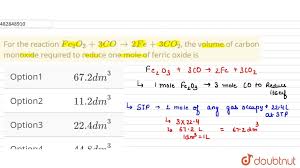 482848910
For the reaction Fe₂O₃ + 3CO → 2Fe + 3CO₂, the volume of carbon
monoxide required to reduce one mole of ferric oxide is
Option1 67.2dm³
Option2 11.2dm³
Option3 22.4dm³
44.8dm³
Fe₂O₃ + 3CO → 2Fe + 3CO₂
↳ 1 mole Fe₂O₃ → 3 mole CO to Reduce
↳ STP → 1 mole of any gas occupy 22.4L
at STP
↳ 3×22.4
↳ 67.2 L = 67.2dm³
doubtnut